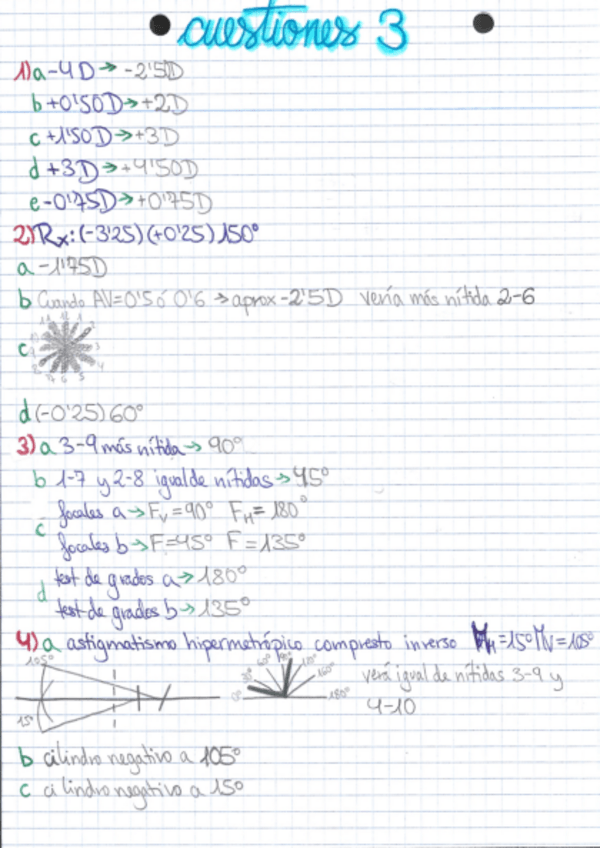 cuestiones 3
1) a -4D → -2'5D
b +0'50D → +2D
c +1'50D → +3D
d +3D → +4'50D
e -0'75D → +0'75D
2) Rx: (-3'25) (+0'25) 150°
a -1'75D
b Cuando AV=0'5 ó 0'6 → aprox -2'5D vería más nítida 2-6
c
d (-0'25) 60°
3) a 3-9 más nítida → 90°
b 1-7 y 2-8 igual de nítidas → 45°
c focales a → Fv = 90° FH = 180°
focales b → F = 45° F = 135°
d test de grados a → 180°
test de grados b → 135°
4) a astigmatismo hipermetrópico compuesto inverso MH = 15° MV = 105°
105° 0° 30° 60° 90° 120° 160° 180° verá igual de nítidas 3-9 y
15° 4-10
b cilindro negativo a 105°
c cilindro negativo a 15°